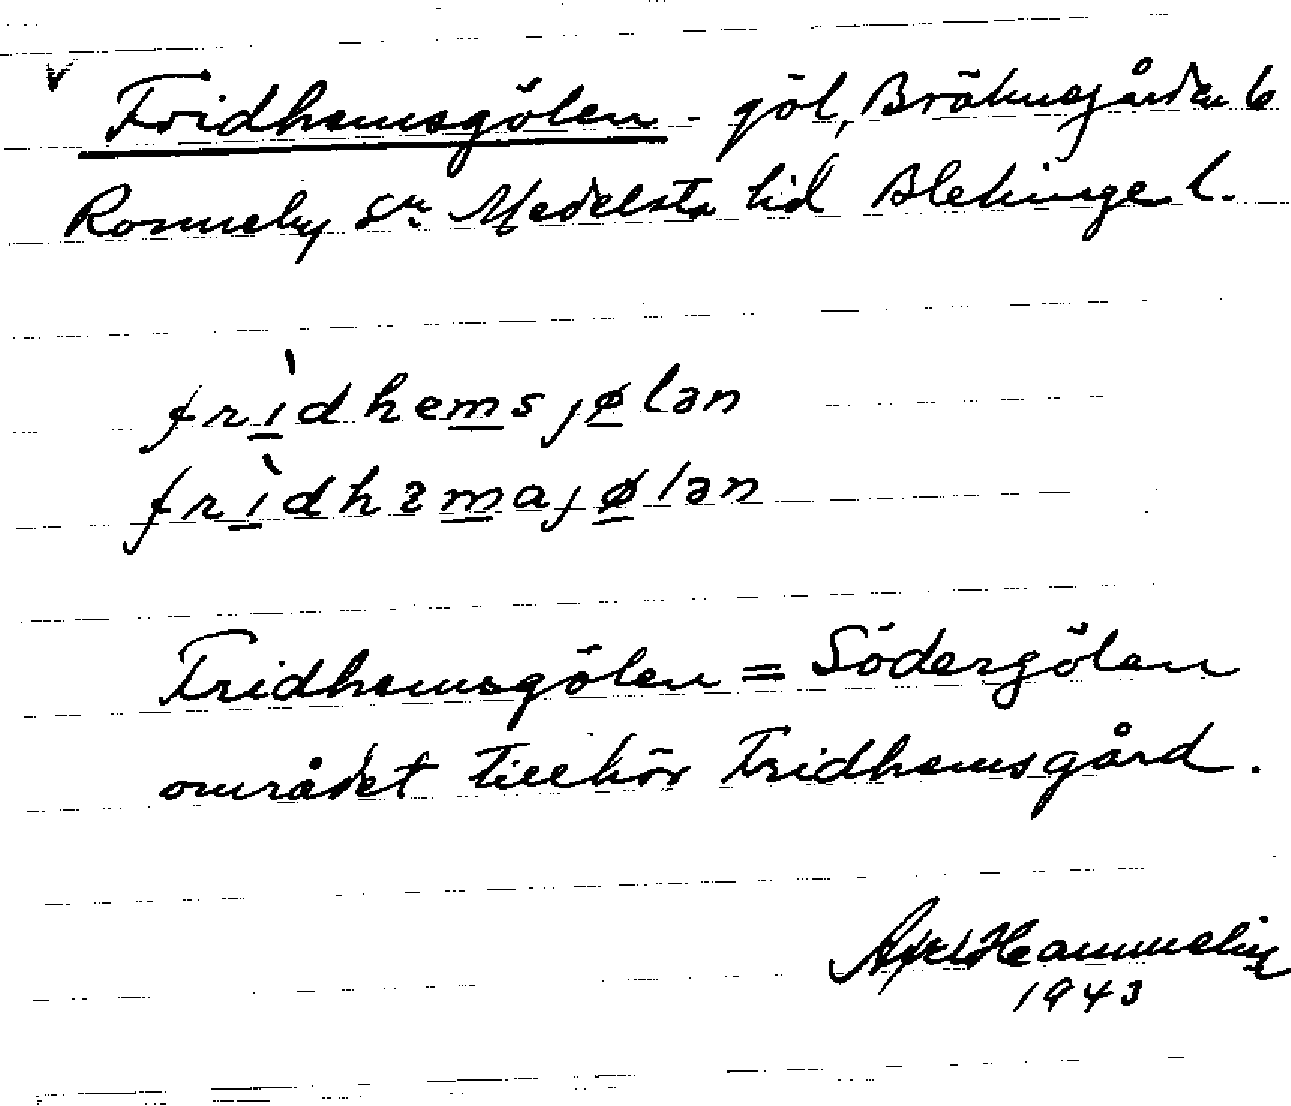 v Fridhemsgölen - göl, Bräknegården 6
Ronneby sn. Medelsta hd Blekinge l.
frìdhemsjølən
frìdhəmajølən
Fridhemsgölen = Södergölen
området tillhör Fridhemsgård.
Axel
1943